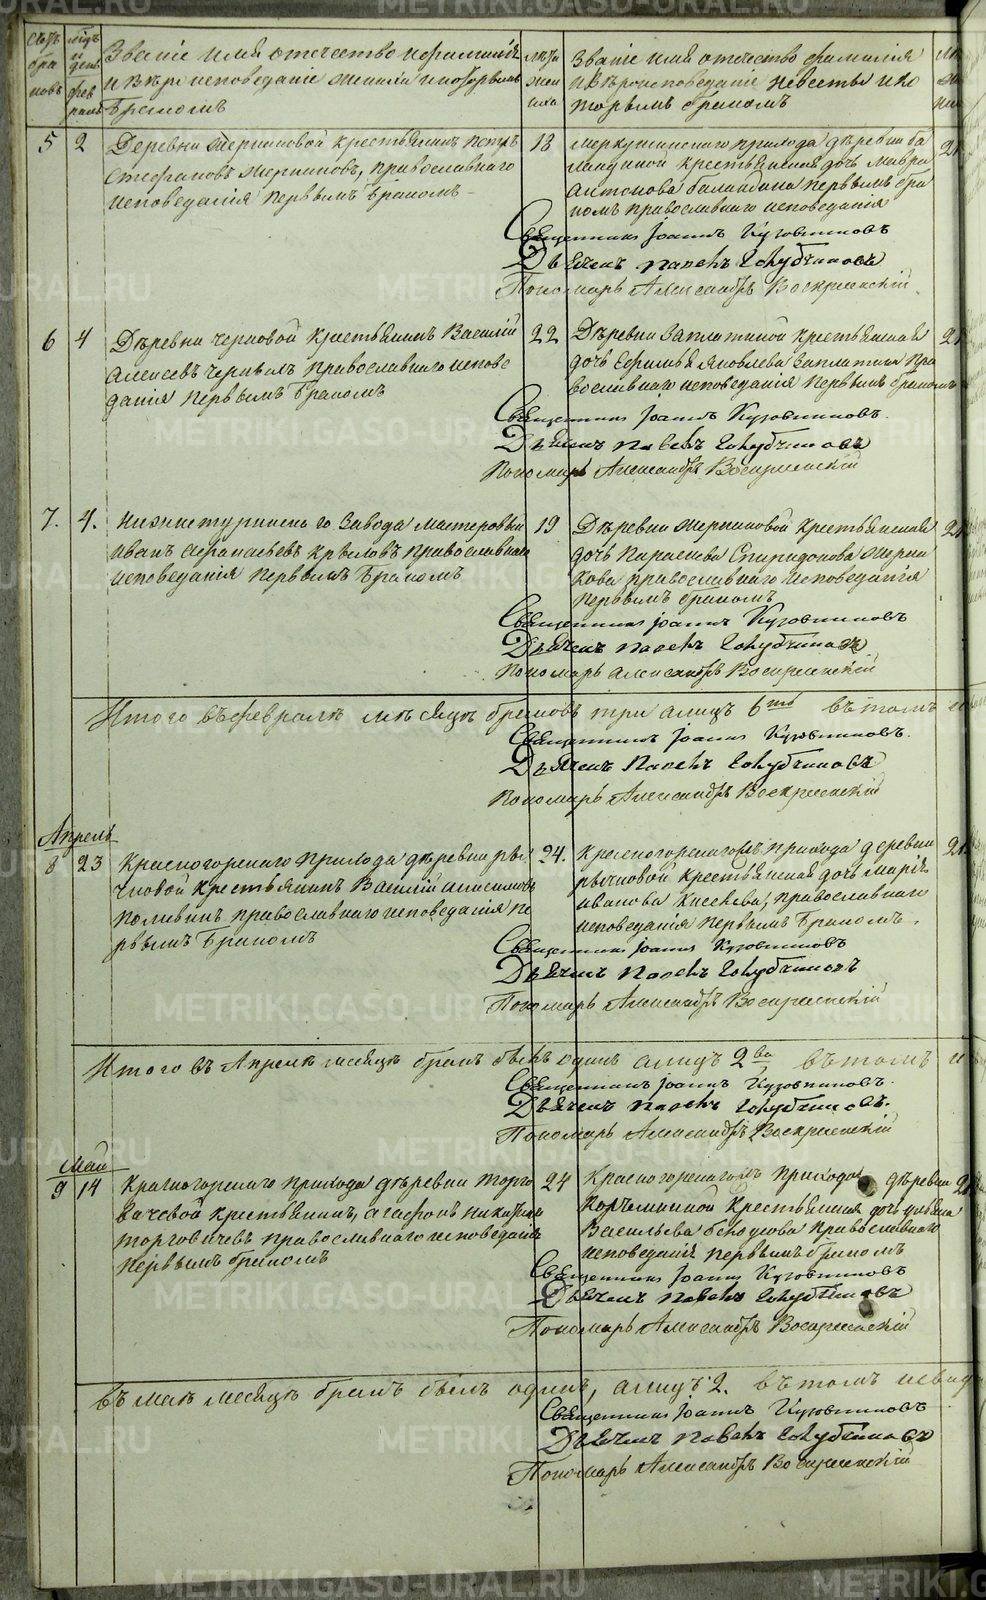 METRIKI.GASO-URAL.RU
Званіе имя отечество и фамилія
и Вѣроисповеданіе жениха и которымъ
Бракомъ
лѣта жениха
Званіе имя отечество фамилія
и вѣроисповеданіе невесты и ко
торымъ бракомъ
5 2 Деревни крестьянинъ Петръ
Стефановъ православнаго
исповеданія первымъ бракомъ
18
Меркушинскаго прихода деревни Ба
ландиной крестьянская дочь Мавра
Антонова Баландина первымъ бра
комъ православнаго исповеданія
Священникъ Іоаннъ Кузовниковъ
Дьячекъ Павелъ Голубчиковъ
Пономарь Александръ Воскресенскій
6 4 Деревни Черновой Крестьянинъ Василій
Алексеевъ православнаго испове
данія первымъ Бракомъ
22
Деревни Заплатиной крестьянская
дочь Ефимья Яковлева Заплатина пра
вославнаго исповеданія первымъ бракомъ
Священникъ Іоаннъ Кузовниковъ
Дьячекъ Павелъ Голубчиковъ
Пономарь Александръ Воскресенскій
7. 4. Нижнетуринскаго Завода мастеровый
Иванъ Афанасьевъ Крыловъ православнаго
исповеданія первымъ Бракомъ
19
Деревни крестьянская
дочь Параскева Спиридонова
кова православнаго исповеданія
первымъ бракомъ
Священникъ Іоаннъ Кузовниковъ
Дьячекъ Павелъ Голубчиковъ
Пономарь Александръ Воскресенскій
Итого въ февралѣ мѣсяцѣ браковъ три а лицъ 6ть въ томъ и
Священникъ Іоаннъ Кузовниковъ.
Дьячекъ Павелъ Голубчиковъ
Пономарь Александръ Воскресенскій
Апрель
8 23 Красногорскаго прихода деревни
Крестьянинъ Василій Анисимовъ
православнаго исповеданія пе
рвымъ Бракомъ
24.
Красногорскагожъ прихода деревни
крестьянская дочь Марія
Иванова православнаго
исповеданія первымъ Бракомъ.
Священникъ Іоаннъ Кузовниковъ
Дьячекъ Павелъ Голубчиковъ
Пономарь Александръ Воскресенскій
Итого въ Апреле месяце бракъ былъ одинъ а лицъ 2ва въ томъ и
Священникъ Іоаннъ Кузовниковъ.
Дьячекъ Павелъ Голубчиковъ.
Пономарь Александръ Воскресенскій
Май
9 14 Красногорскаго прихода деревни Торго
вичевой крестьянинъ, Агафонъ Никитинъ
Торговичевъ православнаго исповеданія
первымъ бракомъ
24
Красногорскагожъ прихода деревни
Крестьянская дочь
Васильева православнаго
исповеданія первымъ бракомъ
Священникъ Іоаннъ Кузовниковъ
Дьячекъ Павелъ Голубчиковъ
Пономарь Александръ Воскресенскій
въ мае месяце бракъ былъ одинъ, а лицъ 2. въ томъ и
Священникъ Іоаннъ Кузовниковъ
Дьячекъ Павелъ Голубчиковъ
Пономарь Александръ Воскресенскій